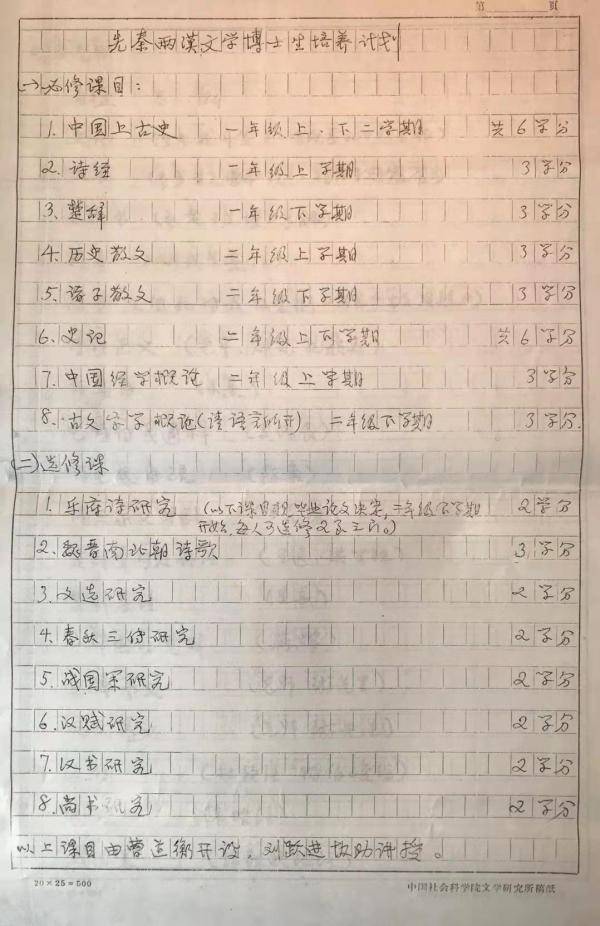 第 页
先秦两汉文学博士生培养计划
(一)必修课目:
1.中国上古史 一年级上、下二学期 共6学分
2.诗经 一年级上学期 3学分
3.楚辞 一年级下学期 3学分
4.历史散文 二年级上学期 3学分
5.诸子散文 二年级下学期 3学分
6.史记 二年级上下学期 共6学分
7.中国经学概论 二年级上学期 3学分
8.古文字学概论(请语言所开) 二年级下学期 3学分.
(二)选修课
1.乐府诗研究 (以下课目视毕业论文决定,二年级下学期 2学分
开始,每人可选修2至三门。)
2.魏晋南北朝诗歌 3学分
3.文选研究 2学分
4.春秋三传研究 2学分
5.战国策研究 2学分
6.汉赋研究 2学分
7.汉书研究 2学分
8.尚书研究 2学分
以上课目由曹道衡开设,刘跃进协助讲授。
20×25=500 中国社会科学院文学研究所稿纸